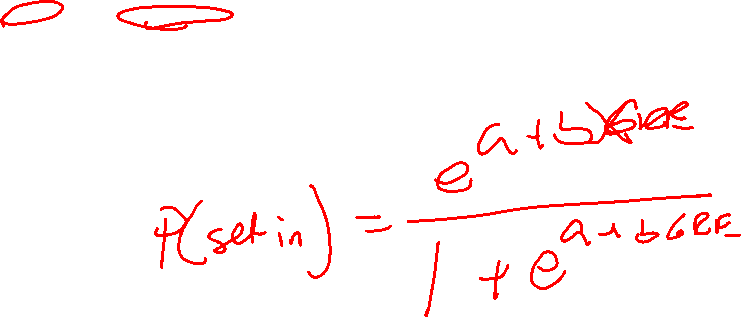 P(get in) = e^{a+b GRE} / (1 + e^{a+b GRE})